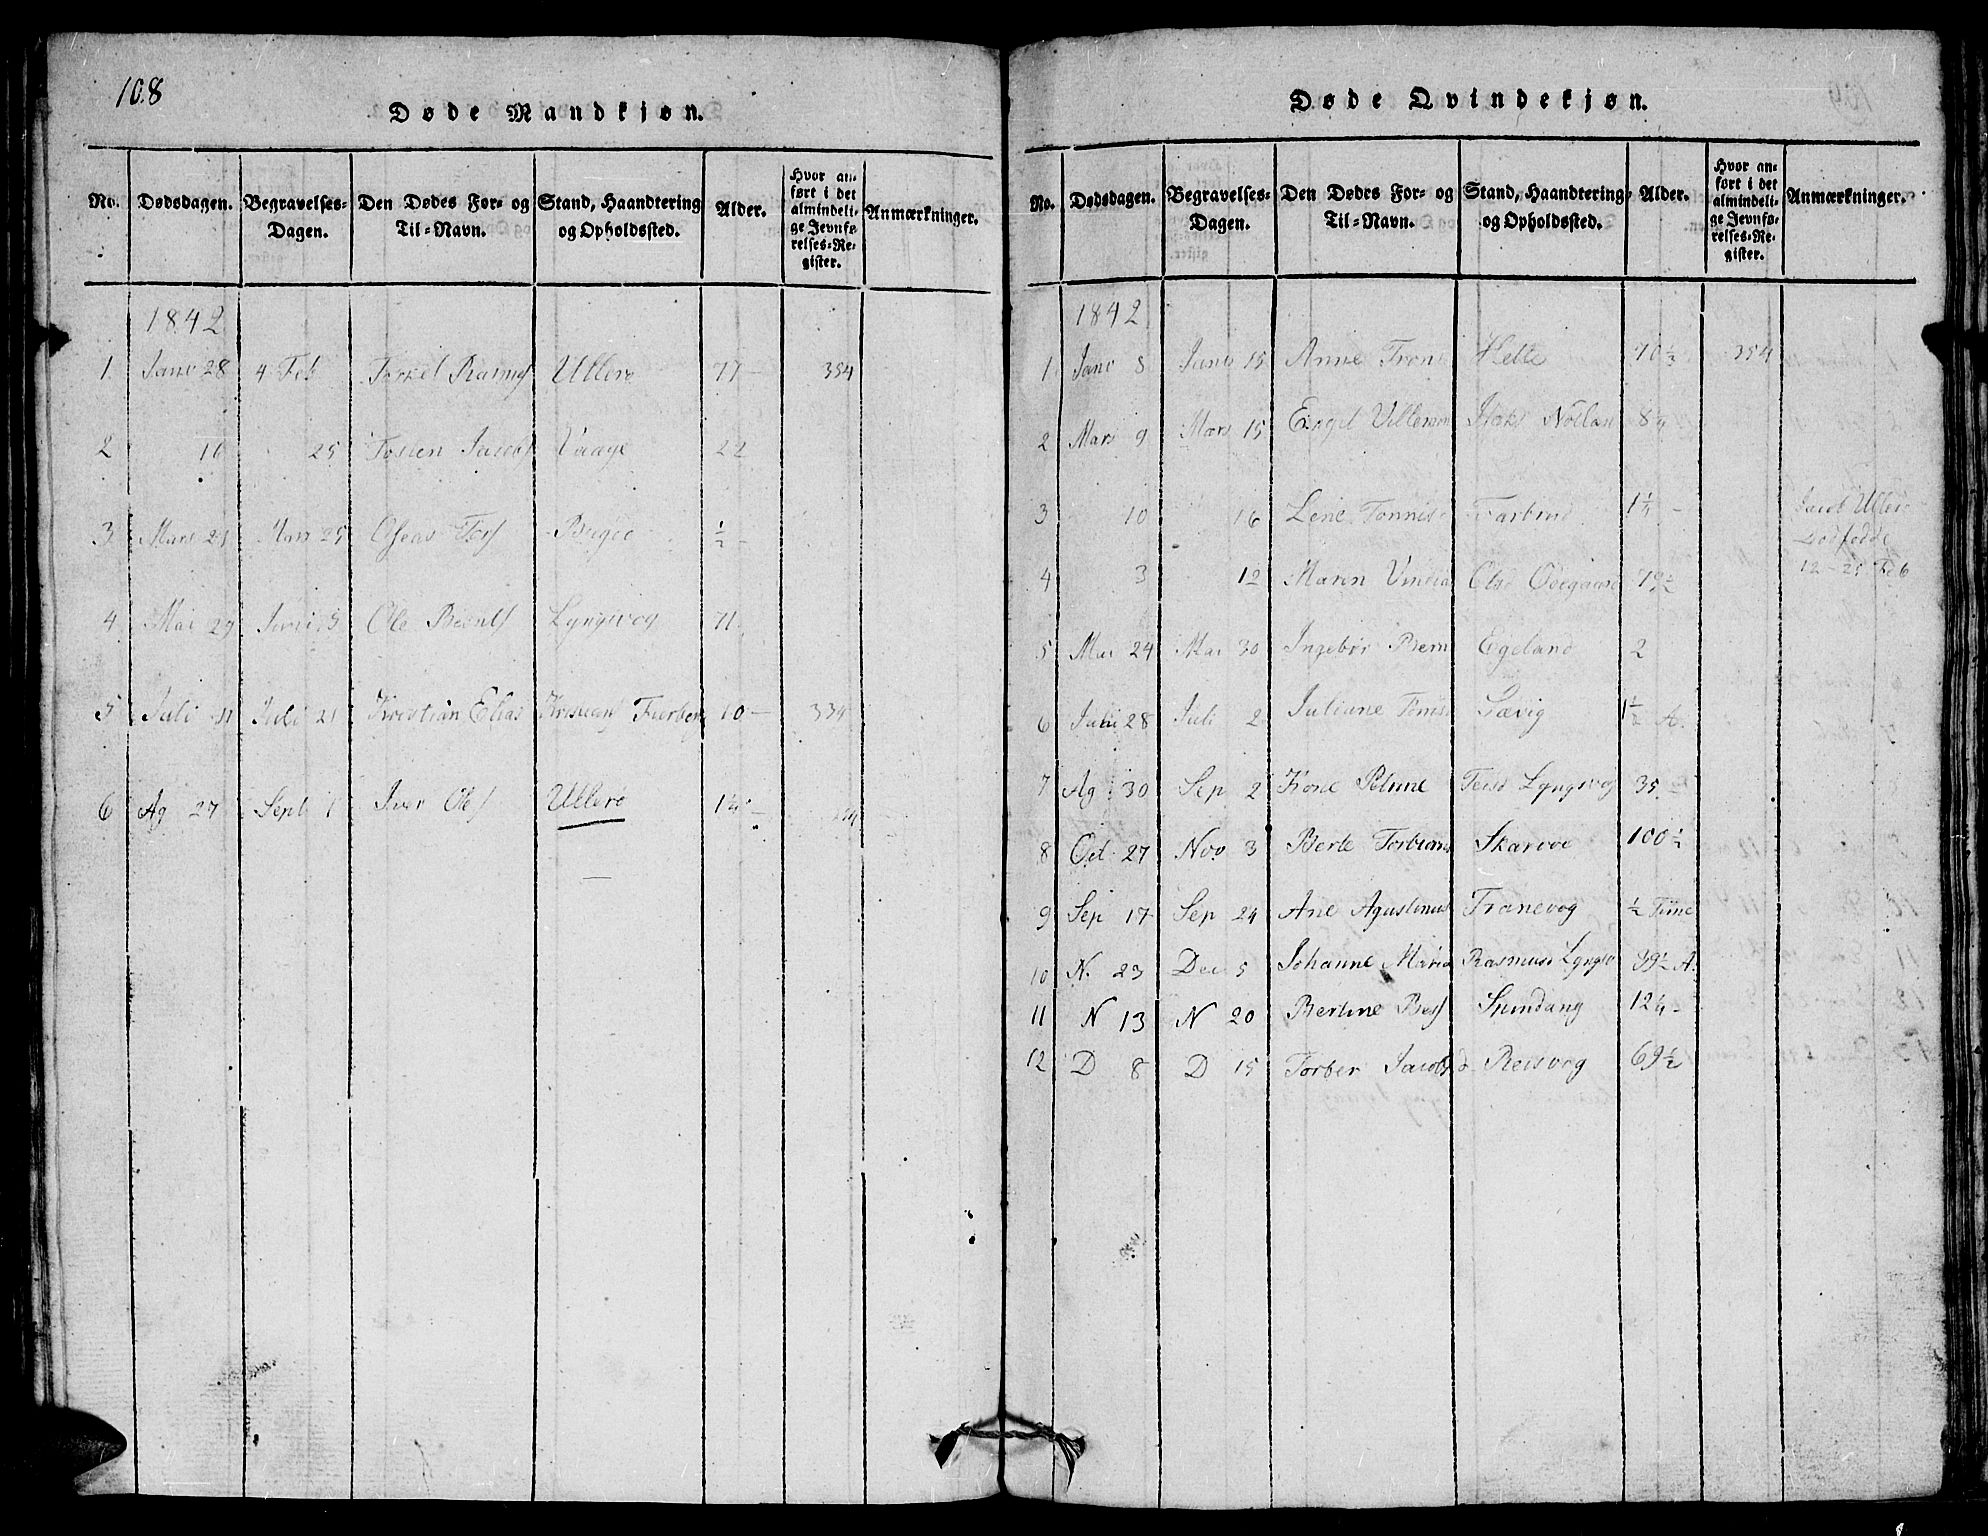 108
Døde Mandkjøn.
No. Dødsdagen. Begravelses-Dagen. Den Dødes For- og Til-Navn. Stand, Haandtering og Opholdssted. Alder. Hvor anført i det almindelige Jevnførelses-Register. Anmærkninger.
1842
1 Janv 28 4 Feb Torkel Rasmuss Ullerø 77 - 354
2 16 25 Tosten Jacobs Vaage 22
3 Mars 21 Mars 25 Oseas Tors ½ -
4 Mai 29 Juni 5 Ole Berents Lyngsvog 71
5 Juli 11 Juli 21 Kristian Elias 10 - 334
6 Ag 27 Sept 1 Iver Ols Ullerø 1¼ -
Døde Qvindekjøn.
No. Dødsdagen. Begravelses-Dagen. Den Dødes For- og Til-Navn. Stand, Haandtering og Opholdssted. Alder. Hvor anført i det almindelige Jevnførelses-Register. Anmærkninger.
1842
1 Janv 8 Janv 15 Anne Trons Helle 70½ 354
2 Mars 9 Mars 15 Engel Villemo
3 10 16 Lene Tønnis Farbrud 1¼ - Jacob Ullerø
Dødfødde
4 3 12 Maren Ols Ødegaard 79½ 12 - 25 Feb
5 Mai 24 Mai 30 Ingebor Bern Egeland 2
6 Juni 28 Juli 2 Juliane Tøms 1½ A.
7 Ag 30 Sep 2 Tone Lyngsvog 35
8 Oct 27 Nov 3 Berte Torbiøns 100½
9 Sep 17 Sep 24 Ane Agustinus Tranevog ½ Time
10 N. 23 Dec 5 Johanne Maria Rasmus Lyngsv 39½ A.
11 N 13 N 20 Bertine Bes Spindang 12¼ -
12 D 8 D 15 Torber Jacobsd Reisvog 69½